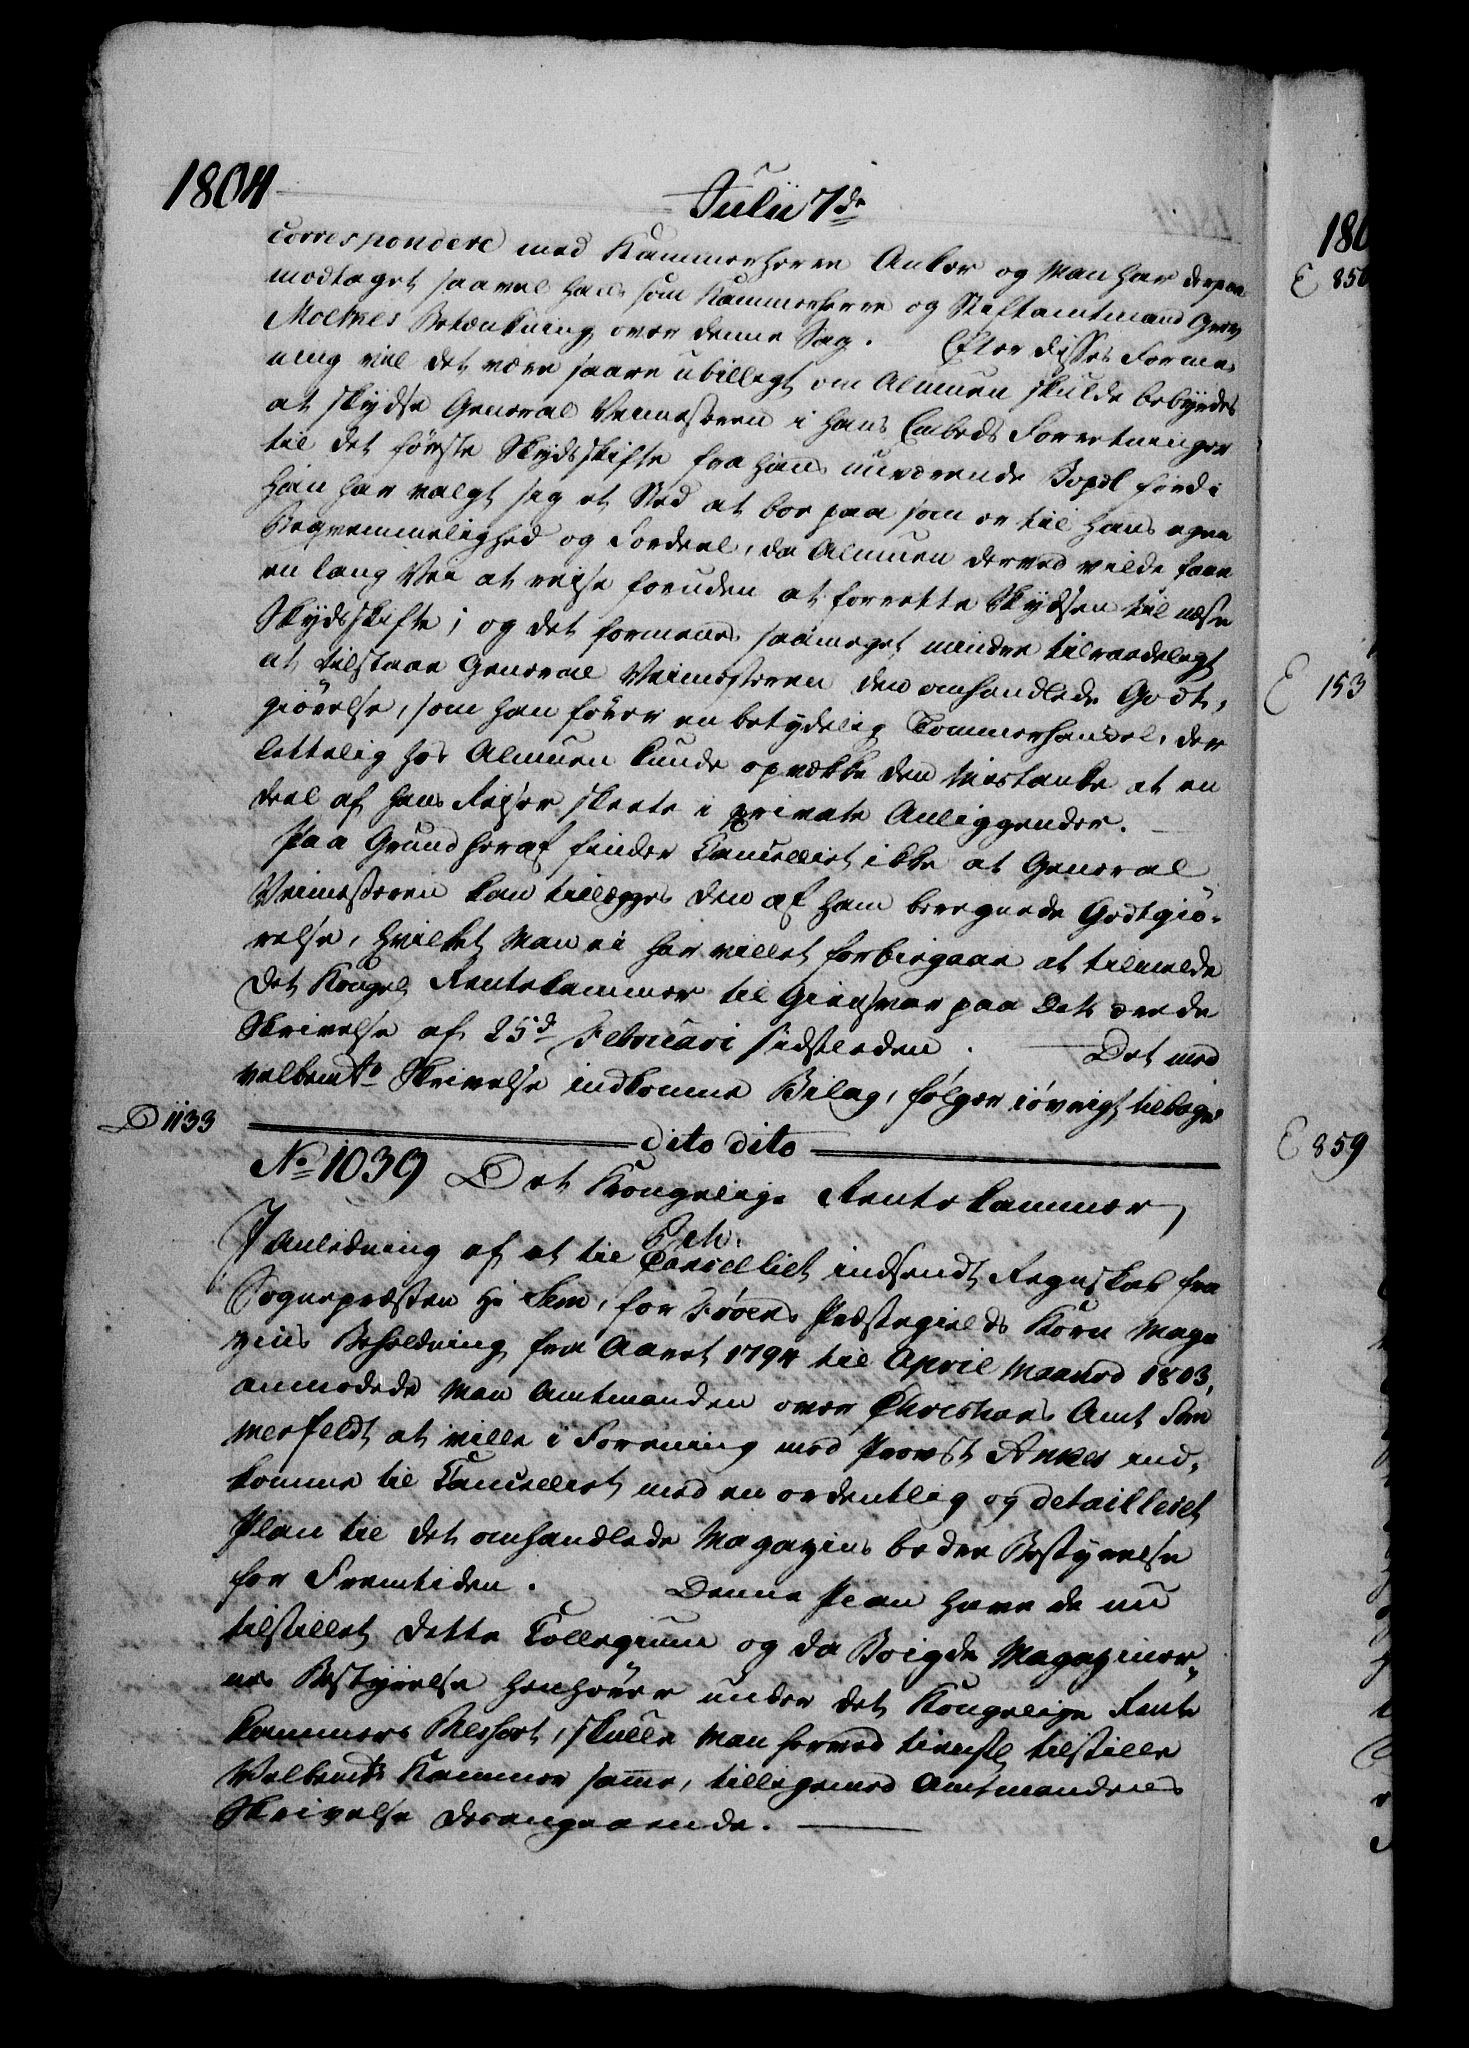 1804
Julii 7de
correspondere med Kammerherre Anker og Man har derpaa
modtaget saavel hans som Kammerherre og Stiftamtmand Grev
Moltkes Betænkning over denne Sag. Efter disses Forme,
ning vil det være saare ubilligt om Almuen skulde bebyrdes
at skydse General Veimesteren i hans Embeds Forretninger
til det første Skydsskifte fra hans nuværende Bopæl fordi
han har valgt sig et Sted at boe paa som er til hans egen
Beqvemmelighed og Fordeel, da Almuen derved vilde faae
en lang Vei at reise foruden at forrette Skydsen til næste
Skydsskifte; og det formenes saameget mindre tilraadeligt
at tilstaae General Veimesteren den omhandlede Godt,
giørelse, som han fører en betydelig Tømmerhandel, der
lettelig hos Almuen kunde opvække den Mistanke at en
Deel af hans Reiser skeete i private Anliggender.
Paa Grund heraf finder Cancelliet ikke at General
Veimesteren kan tillægges den af ham beregnede Godtgiø-
relse, hvilket Man ei har villet forbiegaae at tilmelde
det Kongel Rentekammer til Giensvar paa dets ærede
Skrivelse af 25de Februari sidstleden. Det med
velbemte Skrivelse indkomne Bilag, følger iøvrigt tilbage
D 1133
dito dito
No 1039 Det Kongelige Rentekammer,
I Anledning af et til Cancelliet indsendt Regnskab fra
Sognepræsten Hr Sem, for Frøens Præstegields Korn Maga
zins Beholdning fra Aaret 1794 til April Maaned 1803,
anmodede Man Amtmanden over Christians Amt Som
merfeldt at ville i Forening med Provst Anker ind,
komme til Cancelliet med en ordentlig og detailleret
Plan til det omhandlede Magazins bedre Bestyrelse
for Fremtiden. Denne Plan have de nu
tilstillet dette Collegium og da Boigde Magaziner,,
nes Bestyrelse henhører under det Kongelige Rente
kammers Ressort, skulle Man herved tienstl tilstille
Velbemte Kammer samme, tilligemed Amtmandens
Skrivelse desangaaende.
180
E 850
E 153
E 859